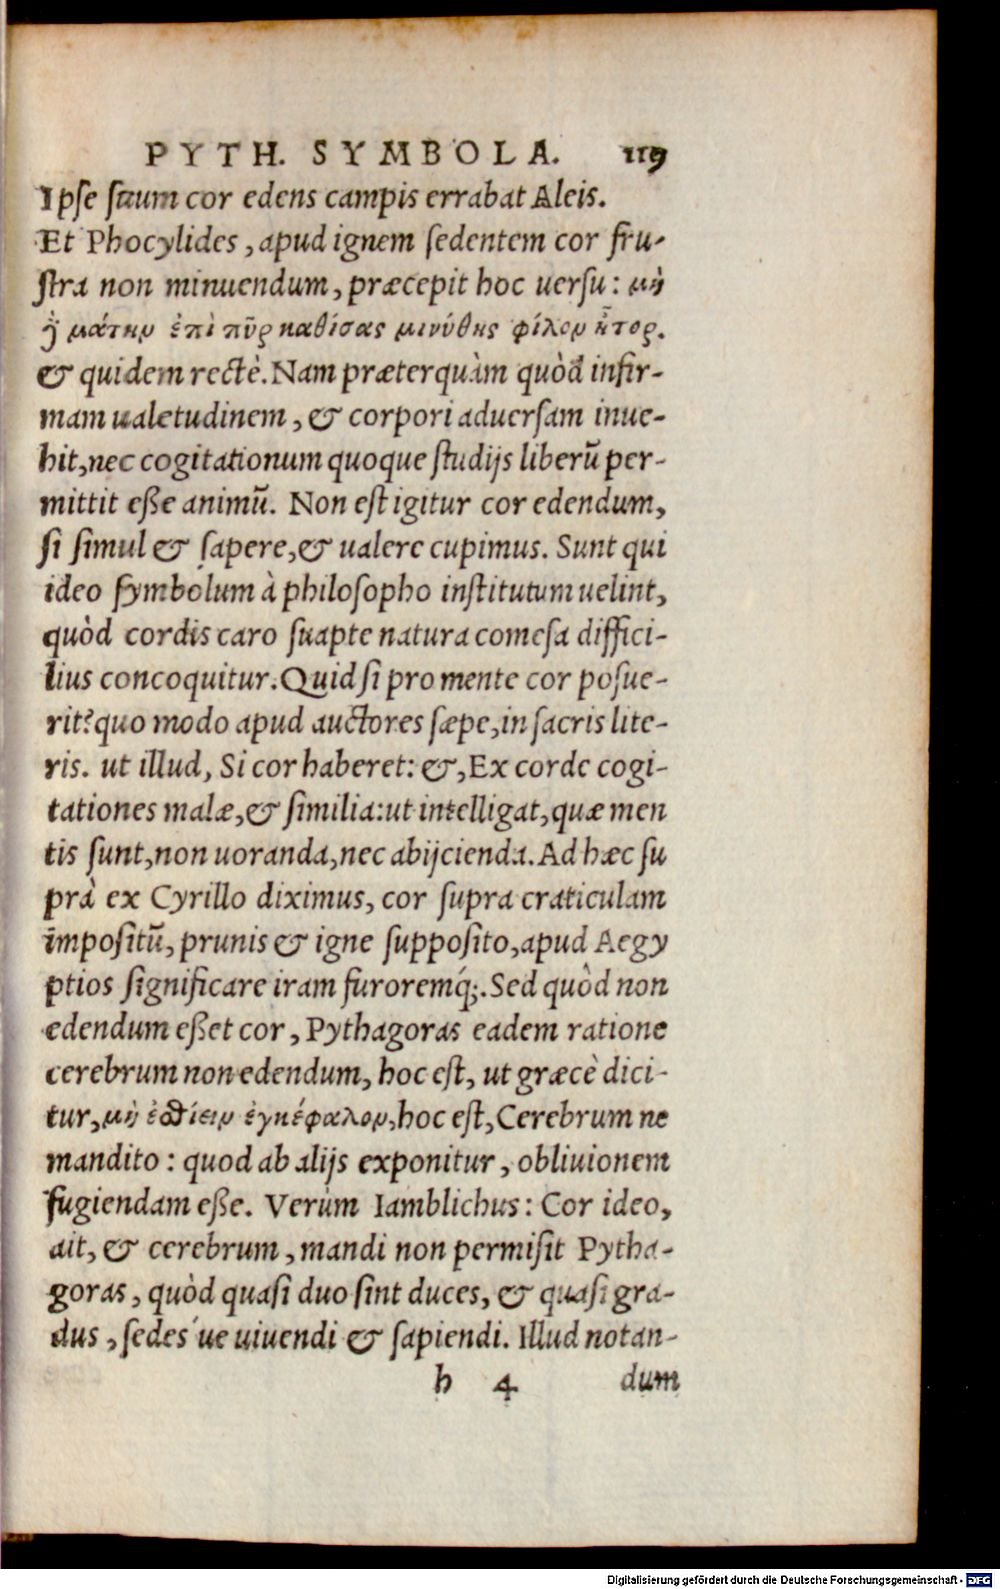 PYTH. SYMBOLA. 119
Ipse suum cor edens campis errabat Aleis.
Et Phocylides, apud ignem sedentem cor fru-
stra non minuendum, præcepit hoc uersu: μὴ
ᾗ μάτην ἐπὶ πῦρ καθίσας μινύθης φίλον ἦτορ.
& quidem rectè. Nam præterquàm quòd infir-
mam ualetudinem, & corpori aduersam inue-
hit, nec cogitationum quoque studijs liberū per-
mittit eße animū. Non est igitur cor edendum,
si simul & sapere, & ualere cupimus. Sunt qui
ideo symbolum à philosopho institutum uelint,
quòd cordis caro suapte natura comesa diffici-
lius concoquitur. Quid si pro mente cor posue-
rit? quo modo apud auctores sæpe, in sacris lite-
ris. ut illud, Si cor haberet: &, Ex corde cogi-
tationes malæ, & similia: ut intelligat, quæ men
tis sunt, non uoranda, nec abijcienda. Ad hæc su
prà ex Cyrillo diximus, cor supra craticulam
impositū, prunis & igne supposito, apud Aegy
ptios significare iram furoremq́;. Sed quòd non
edendum eßet cor, Pythagoras eadem ratione
cerebrum non edendum, hoc est, ut græcè dici-
tur, μὴ ἐσθίειν ἐγκέφαλον, hoc est, Cerebrum ne
mandito: quod ab alijs exponitur, obliuionem
fugiendam eße. Verùm Iamblichus: Cor ideo,
ait, & cerebrum, mandi non permisit Pytha-
goras, quòd quasi duo sint duces, & quasi gra-
dus, sedes´ue uiuendi & sapiendi. Illud notan-
h 4 dum
Digitalisierung gefördert durch die Deutsche Forschungsgemeinschaft - DFG